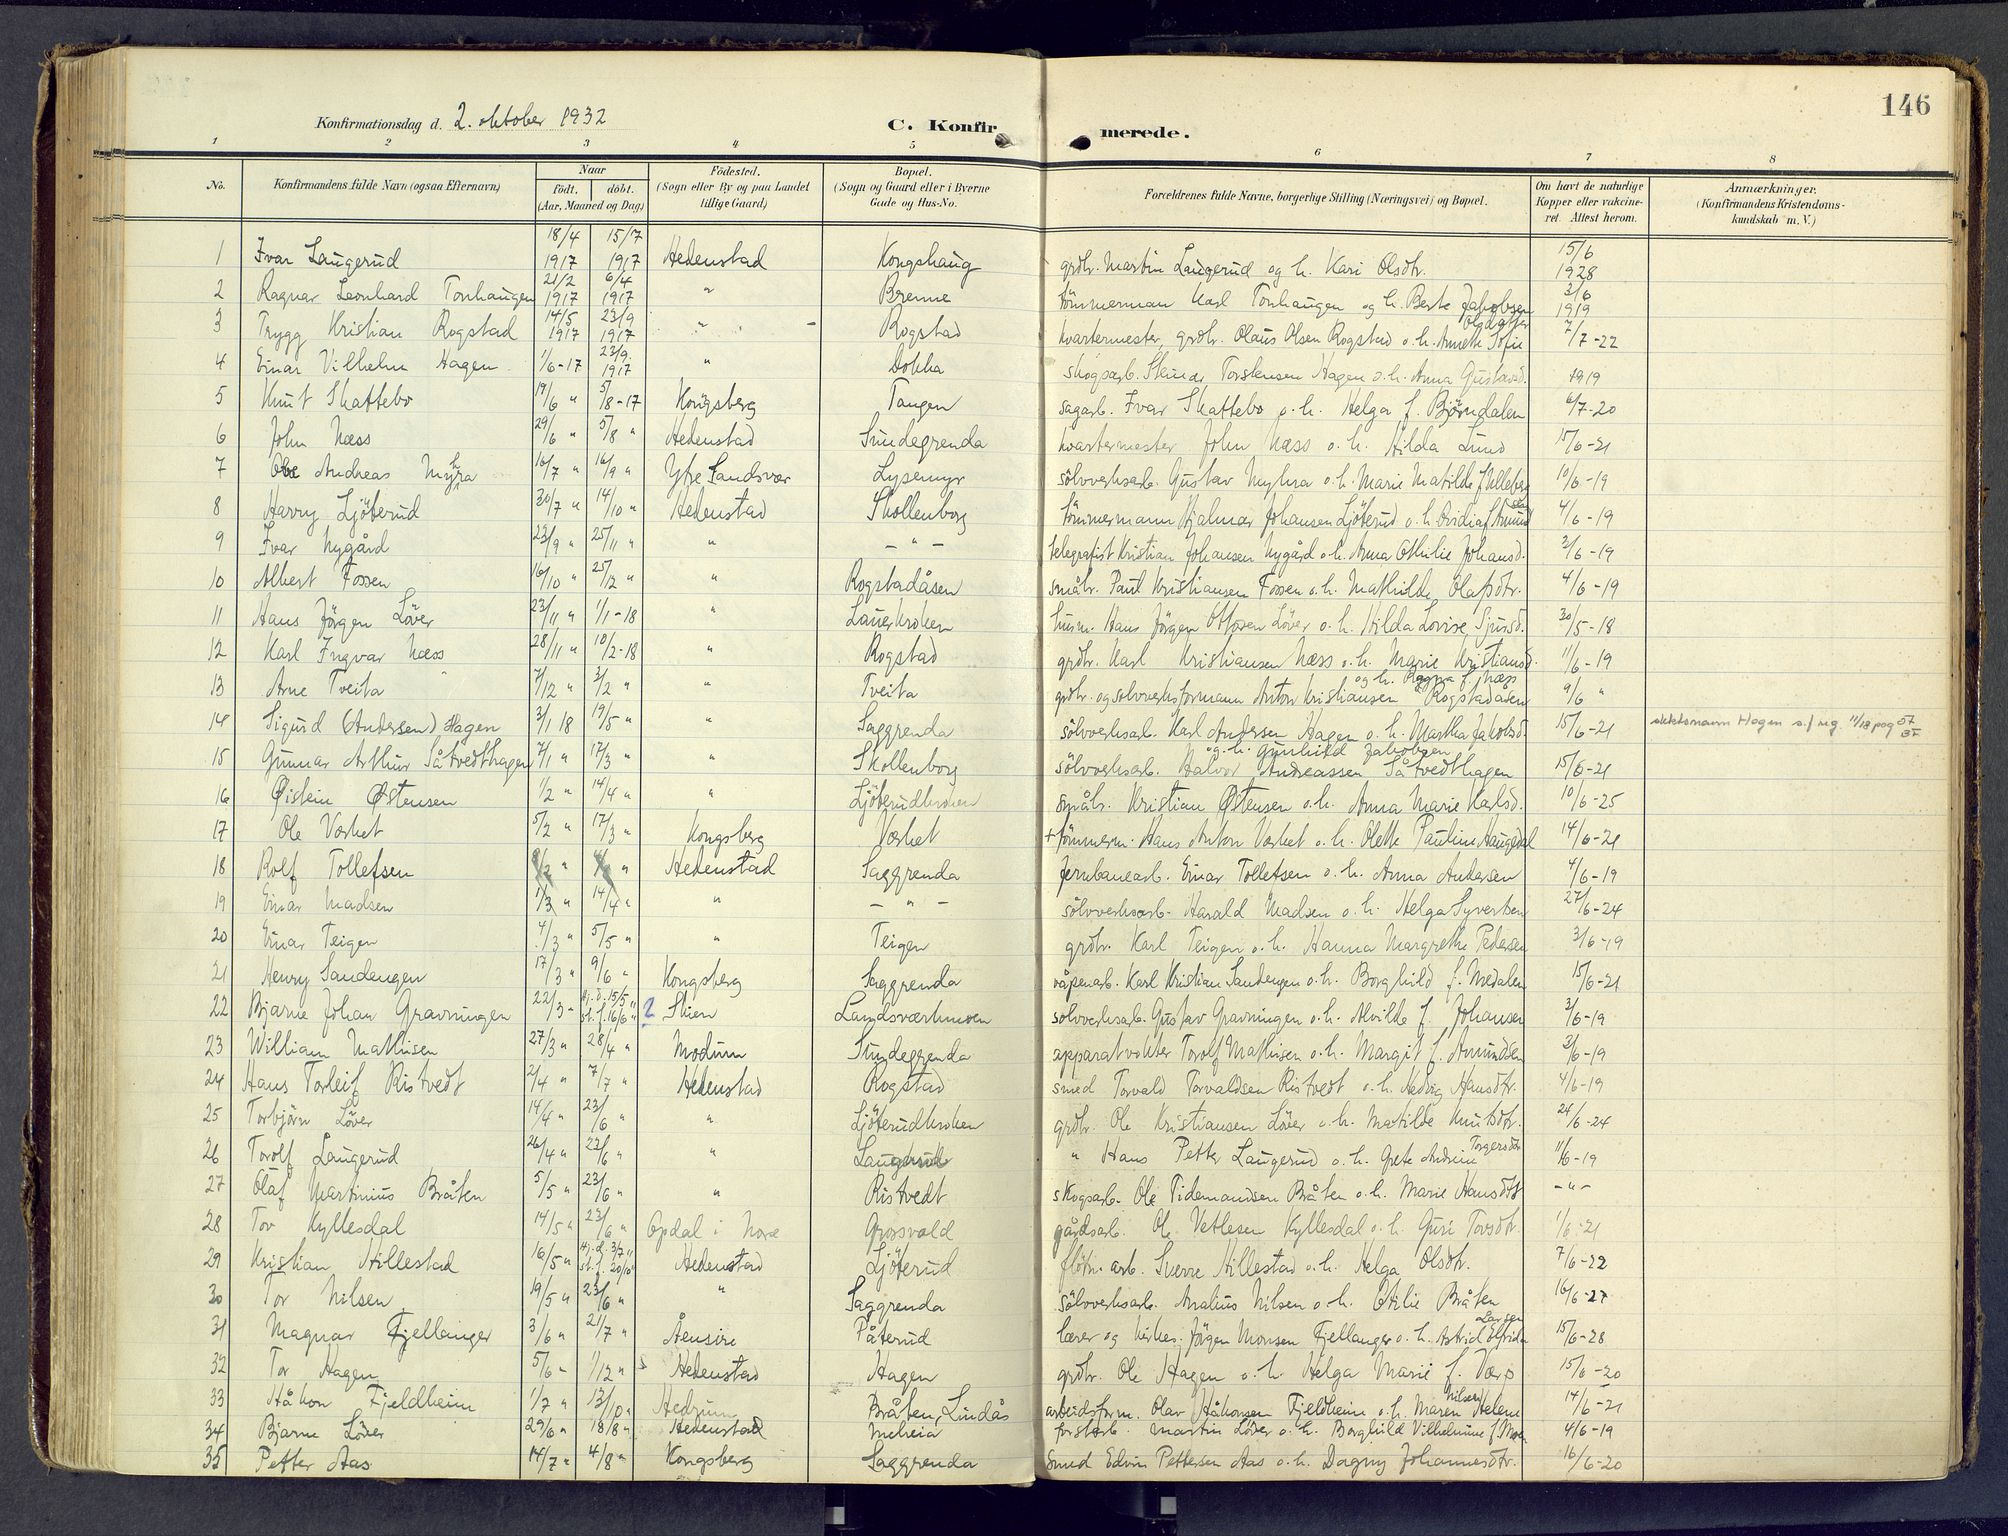 146
Konfirmationsdag d. 2. oktober 1932
C. Konfirmerede.
1 2 3 4 5 6 7 8
No. Konfirmandens fulde Navn (ogsaa Efternavn) Naar födt. döbt. (Aar, Maaned og Dag) Födested. (Sogn eller By og paa Landet tillige Gaard) Bopæl. (Sogn og Gaard eller i Byerne Gade og Hus-No. Forældrenes fulde Navne, borgerlige Stilling (Næringsvei) og Bopæl. Om havt de naturlige Kopper eller vakcineret. Attest herom. Anmærkninger. (Konfirmandens Kristendomskundskab m. V.)
1 Ivar Laugerud 18/4 1917 15/7 1917 Hedenstad Kongshaug grdbr. Martin Laugerud og h. Kari Olsdtr. 15/6 1928
2 Ragnar Leonhard Tonhaugen 21/2 1917 6/4 1917 " Brenne tömmerman Karl Tonhaugen og h. Berte Jakobsen 3/6 1919
3 Trygg Kristian Rogstad 14/5 1917 23/9 1917 " Rogstad kvartermester, grdbr. Olaus Olsen Rogstad o.h. Annette Sofie Olsdatter 7/7-22
4 Einar Vilhelm Hagen 1/6-17 23/9 1917 " Dokka skogsarb. Torstensen Hagen o.h. Anna Gustavsd. 1919
5 Knut Skattebo 19/6 " 5/8-17 Kongsberg Tangen sagarb. Ivar Skattebo o.h. Helga f. Björndalen 6/7-20
6 John Næss 29/6 " 5/8 " Hedenstad Sundegrenda kvartermester John Næss o.h. Hilda Lund 15/6-21
7 Ole Andreas Myhra 16/7 " 16/9 " Ytre Sandsvær Lysemyr sölvverksarb. Gustav Myhra o.h. Marie Matilde f. Ulleberg 10/6-19
8 Harry Ljöterud 30/7 " 14/10 " Hedenstad Skollenborg tömmermann Hjalmar Johansen Ljöterud o.h. 4/6-19
9 Ivar Nygård 23/9 " 25/11 " " - " - telegrafist Kristian Johansen Nygård o.h. Anna Othilie Johansd. 3/6-19
10 Albert Fossen 16/10 " 25/12 " " Rogstadåsen småbr. Paul Kristiansen Fossen o.h. Mathilde Olafsdtr. 4/6-19
11 Hans Jörgen Löver 23/11 " 1/1-18 " Lauerkroken husm. Hans Jörgen Ottosen Löver o.h. Hilda Lovise Sjursd. 30/5-18
12 Karl Ingvar Næss 28/11 " 10/2-18 " Rogstad grdbr. Karl Kristiansen Næss o.h. Marie Kristiansd. 11/6-19
13 Arne Tveita 7/12 " 3/2 " " Tveita grdbr. og sölvverksformann Anton Kristiansen Rogstadåsen og h. Ragna f. Næss 9/6 "
14 Sigurd (Andersen) Hagen 3/1 18 19/5 " " Saggrenda sölvverksarb. Karl Andersen Hagen o.h. Martha Jakobsd. 15/6-21 slektsnavn Hagen
15 Gunnar Arthur Såtvedthagen 7/1 " 17/3 " " Skollenborg sölvverksarb. Halvor Andreassen Såtvedthagen o.h. Gunhild Jakobsen 15/6-21
16 Øistein Østensen 1/2 " 14/4 " " Ljöterudkroken småbr. Kristian Østensen o.h. Anna Marie Karlsd. 10/6-25
17 Ole Værket 5/2 " 17/3 " Kongsberg Værket + tömmerm. Hans Anton Værket o.h. Olette Pauline Haugedal 14/6-21
18 Rolf Tollefsen " " Hedenstad Saggrenda Jernbanearb. Einar Tollefsen o.h. Anna Andersen 4/6-19
19 Einar Madsen 1/3 " 14/4 " " - " - sölvverksarb. Harald Madsen o.h. Helga Syvertsen 27/6-24
20 Einar Teigen 4/3 " 5/5 " " Teigen grdbr. Karl Teigen o.h. Hanna Margrethe Pedersen 3/6-19
21 Henry Sandengen 17/3 " 9/6 " Kongsberg Saggrenda våpenarb. Karl Kristian Sandengen o.h. Borghild f. Medalen 15/6-21
22 Bjarne Johan Gravningen 22/3 " hj.d. 15/5 " st.f. 16/6 " ? Skien Landsværkmoen sölvverksarb. Gustav Gravningen o.h. Alvilde f. Johansen 3/6-19
23 William Mathisen 27/3 " 28/4 " Modum Sundegrenda apparatvokter Torolf Mathisen o.h. Margit f. Amundsen 3/6-19
24 Hans Torleif Ristvedt 2/4 " 7/7 " Hedenstad Rogstad smed Torvald Torvaldsen Ristvedt o.h. Hedvig Hansdtr. 4/6-19
25 Torbjörn Löver 14/4 " 23/6 " " Ljöterudkroken grdbr. Ole Kristiansen Löver o.h. Matilde Knutsdtr. 24/6-24
26 Torolf Laugerud 26/4 " 23/6 " " Laugerud " Hans Petter Laugerud o.h. Grete Andrine Torgersdtr 11/6-19
27 Olaf Martinius Bråten 5/5 " 23/6 " " Ristvedt skogsarb. Ole Tidemandsen Bråten o.h. Marie Hansdtr - " -
28 Tov Kyllesdal 14/5 " 23/6 " Opdal i Nore Grosvold gårdsarb. Ole Vetlesen Kyllesdal o.h. Guri Tovsdtr. 1/6-21
29 Kristian Hillestad 16/5 " hj.d. 3/7 " st.f. 20/10 " Hedenstad Ljöterud flötn. arb. Sverre Hillestad o.h. Helga Olsdtr. 7/6-22
30 Tor Nilsen 19/5 " 23/6 " " Saggrenda sölvverksarb. Analius Nilsen o.h. Otilie Bråten 16/6-27
31 Magnar Fjellanger 3/6 " 21/7 " Åensire Påterud lærer og kirkes. Jörgen Monsen Fjellanger o.h. Astrid Elfrida Larsen 15/6-28
32 Tor Hagen 5/6 " 1/12 " Hedenstad Hagen grdbr. Ole Hagen o.h. Helga Marie f. 15/6-20
33 Håkon Fjeldheim 1/7 " 13/10 " Hedrum Bråten, Lindås arbeidsform. Olav Håkonsen Fjeldheim o.h. Maren Helene Nilsen 14/6-21
34 Bjarne Löver 29/6 " 18/8 " Hedenstad Meheia forstarb. Martin Löver o.h. Borghild Vilhelmine f. Moen 4/6-19
35 Petter Aas 14/7 " 4/8 " Kongsberg Saggrenda Smed Edvin Pettersen Aas o.h. Dagny Johannesdtr. 16/6-20